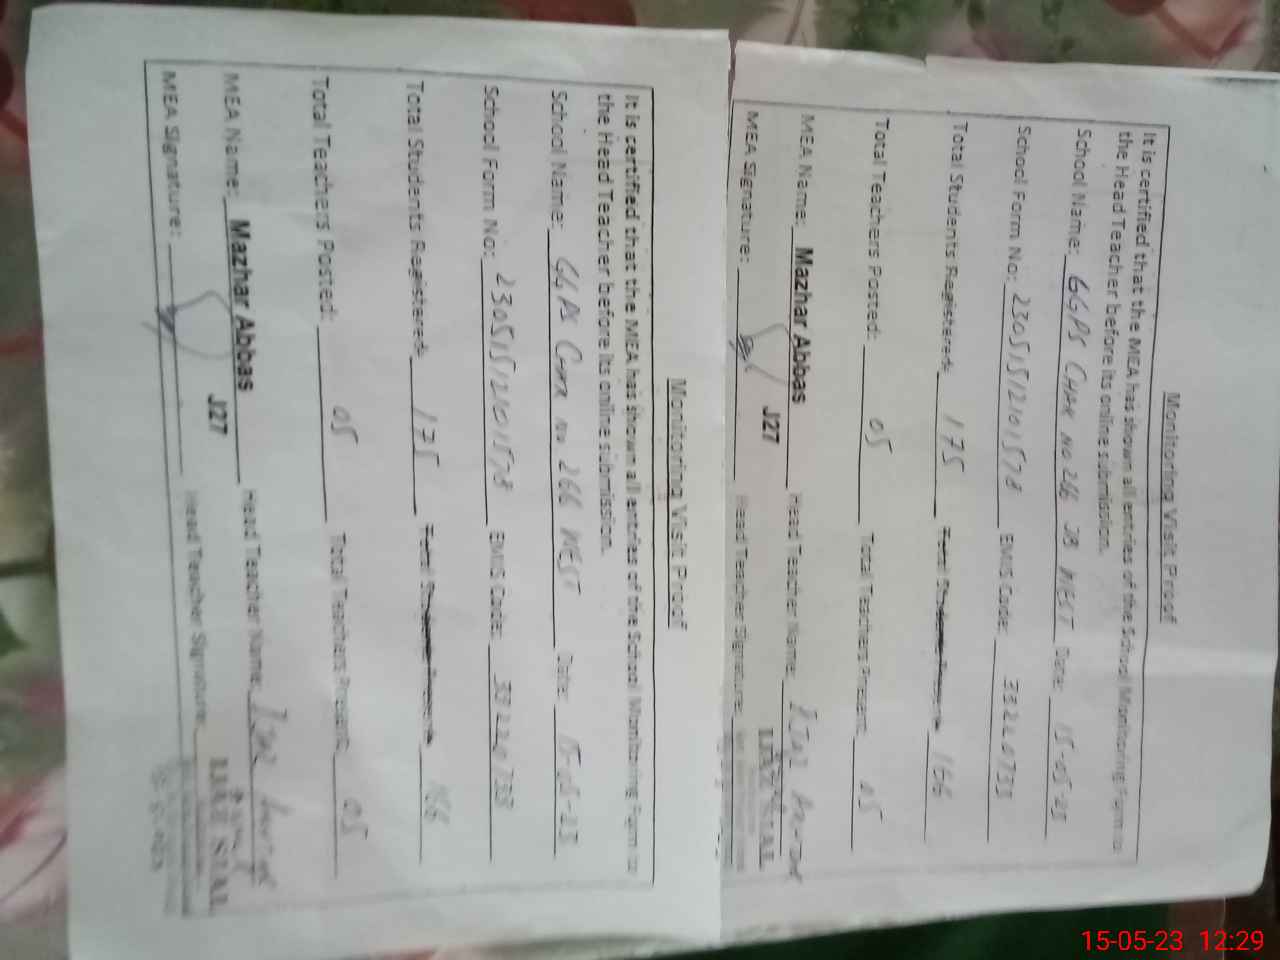 Monitoring Visit Proof
It is certified that the MEA has shown all entries of the School Monitoring Form to
the Head Teacher before its online submission.
School Name: GGPS CHAK NO 266 JB WEST Date: 15-05-23
School Form No: 23051512101578 EMIS Code: 33220733
Total Students Registered: 175 Total Students Present: 166
Total Teachers Posted: 05 Total Teachers Present: 05
MEA Name: Mazhar Abbas Head Teacher Name:
J27
MEA Signature: Head Teacher Signature:
Monitoring Visit Proof
It is certified that the MEA has shown all entries of the School Monitoring Form to
the Head Teacher before its online submission.
School Name: GGPS Chak no 266 WEST Date: 15-05-23
School Form No: 23051512101578 EMIS Code: 33220733
Total Students Registered: 175 Total Students Present: 166
Total Teachers Posted: 05 Total Teachers Present: 05
MEA Name: Mazhar Abbas Head Teacher Name:
J27
MEA Signature: Head Teacher Signature:
15-05-23 12:29